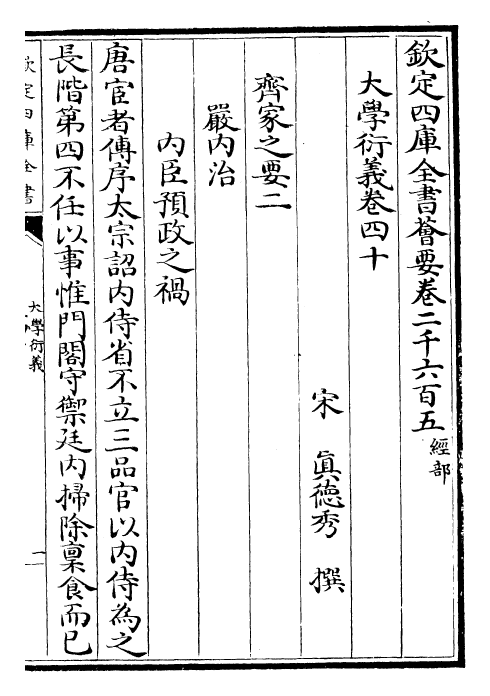 欽定四庫全書薈要卷二千六百五 經部
大學衍義卷四十
宋 眞德秀 撰
齊家之要二
嚴内治
内臣預政之禍
唐宦者傳序太宗詔内侍省不立三品官以内侍為之
長階第四不任以事惟門閤守禦廷内掃除稟食而已
欽定四庫全書
大學衍義